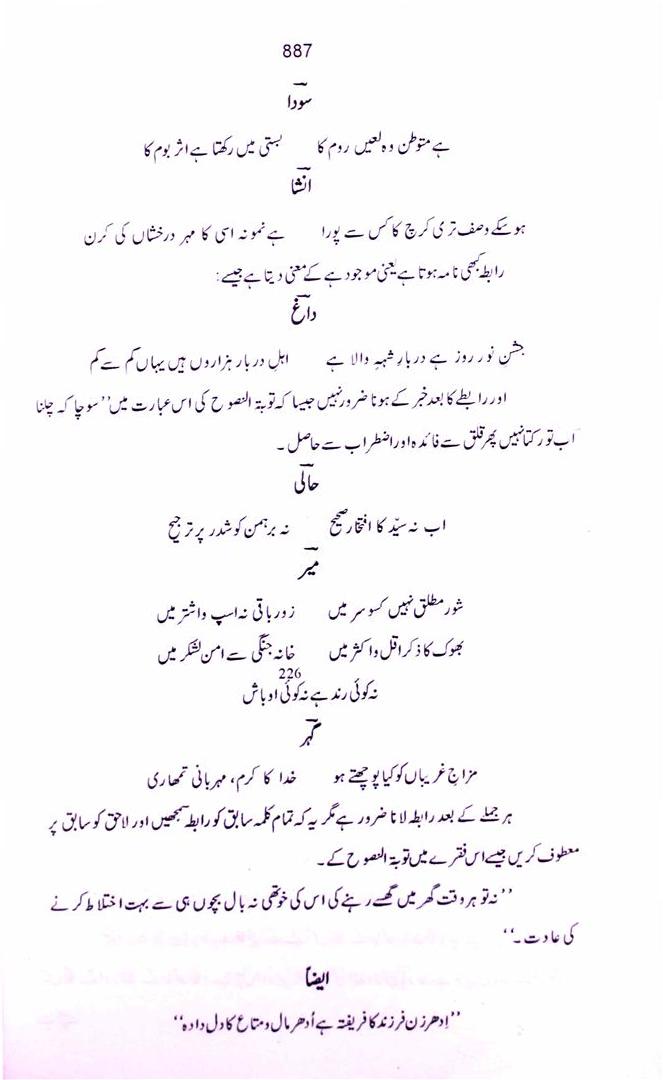 887
سودا
ہے متوطن وہ لعیں روم کا بستی میں رکھتا ہے اثر بوم کا
انشا
ہو سکے وصف تری کرچ کا کس سے پورا ہے نمونہ اسی کا مہر درخشاں کی کرن
رابطہ کبھی نامہ ہوتا ہے یعنی موجود ہے کے معنی دیتا ہے جیسے:
داغ
جشنِ نو روز ہے دربارِ شہہِ والا ہے اہلِ دربار ہزاروں ہیں یہاں کم سے کم
اور رابطے کا بعد خبر کے ہونا ضرور نہیں جیسا کہ توبۃ النصوح کی اس عبارت میں ’’سوچا کہ چلنا
اب تو رکتا نہیں پھر قلق سے فائدہ اور اضطراب سے حاصل۔
حالی
اب نہ سیّد کا افتخار صحیح نہ برہمن کو شدر پر ترجیح
میر
شور مطلق نہیں کسو سر میں زور باقی نہ اسپ و اشتر میں
بھوک کا ذکر اقل و اکثر میں خانہ جنگی سے امن لشکر میں
نہ کوئی رند ہے نہ کوئی اوباش 226
گہر
مزاجِ غریباں کو کیا پوچھتے ہو خدا کا کرم، مہربانی تمھاری
ہر جملے کے بعد رابطہ لانا ضرور ہے مگر یہ کہ تمام کلمہ سابق کو رابطہ سمجھیں اور لاحق کو سابق پر
معطوف کریں جیسے اس فقرے میں توبۃ النصوح کے۔
’’نہ تو ہر وقت گھر میں گھسے رہنے کی اس کی خو تھی نہ بال بچوں ہی سے بہت اختلاط کرنے
کی عادت۔‘‘
ایضاً
’’اِدھر زن فرزند کا فریفتہ ہے اُدھر مال و متاع کا دل دادہ‘‘